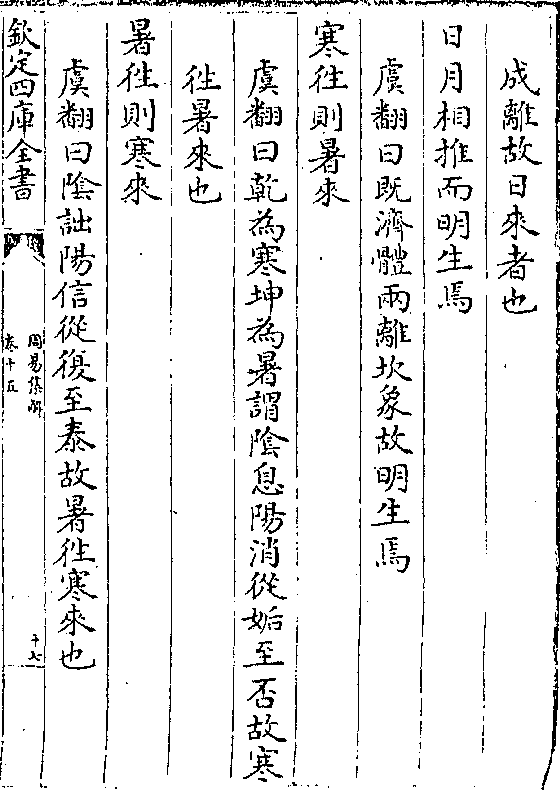 成離故日來者也
日月相推而明生焉
虞翻曰既濟體兩離坎象故明生焉
寒徃則暑來
虞翻曰乾為寒坤為暑謂陰息陽消從姤至否故寒
徃暑來也
暑徃則寒來
虞翻曰陰詘陽信從復至泰故暑徃寒來也
欽定四庫全書
周易集解
卷十五
十七